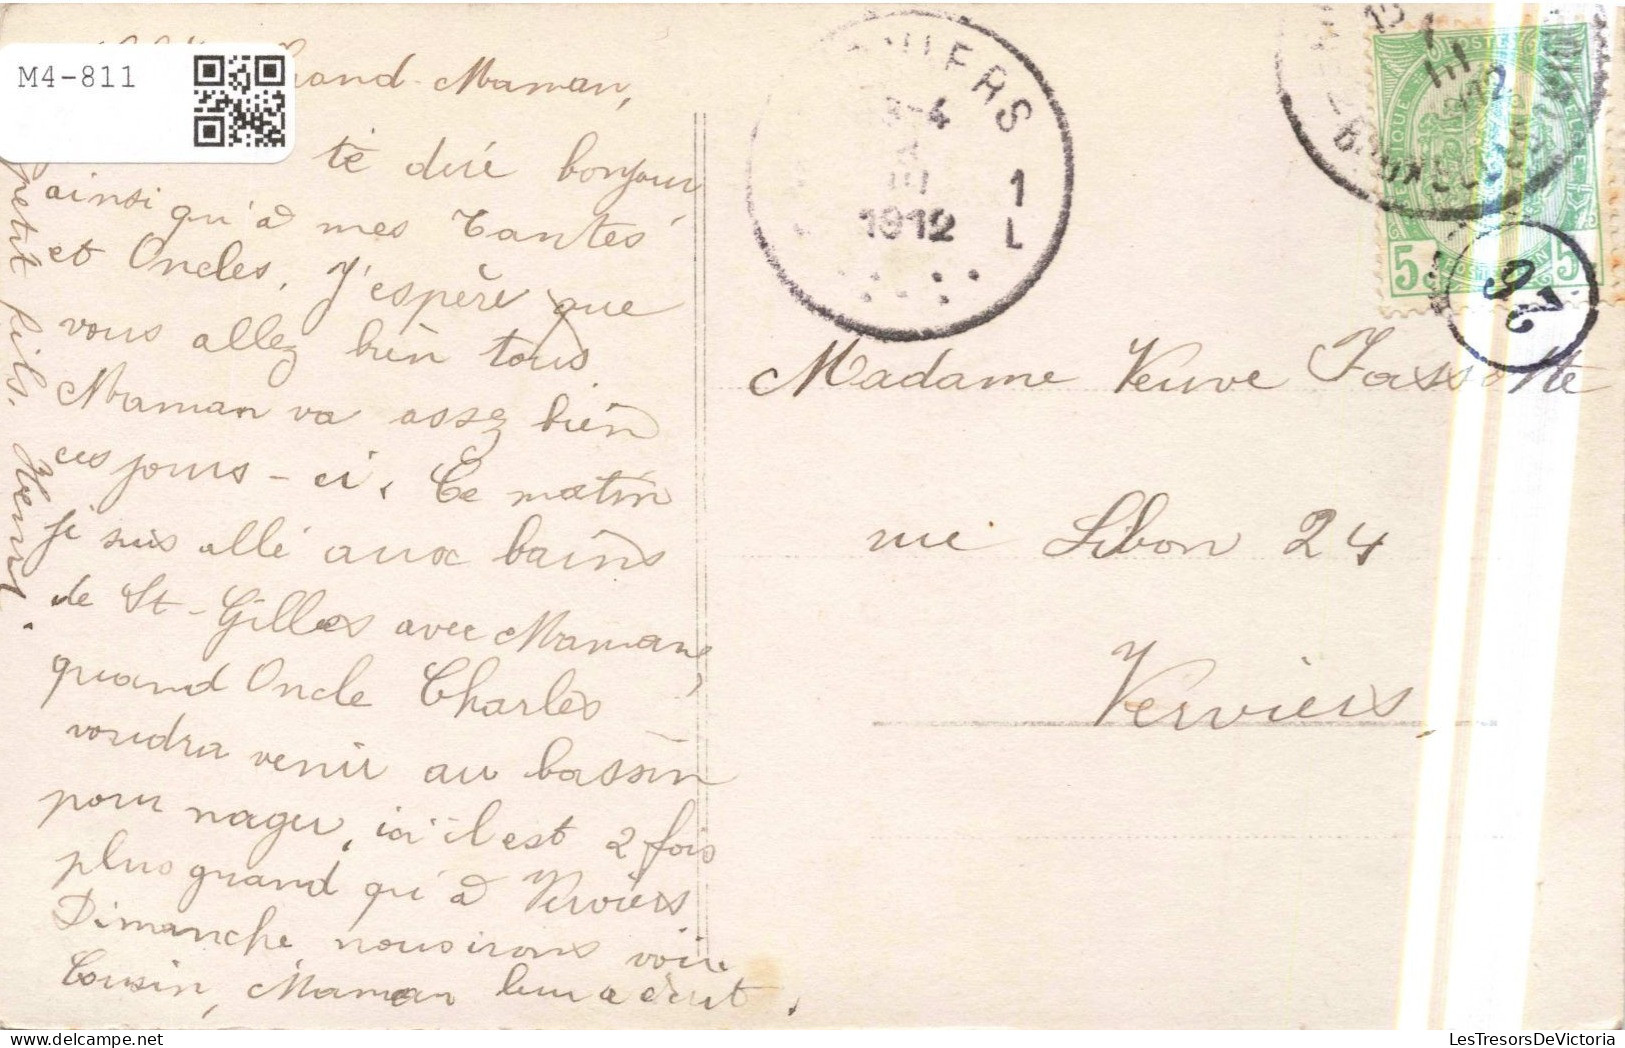 M4-811
Grand-Maman,
te dire bonjour
ainsi qu'à mes Tantes
et Oncles. J'espère que
vous allez bien tous
Maman va assez bien
ces jours-ci. Ce matin
je suis allé aux bains
de St-Gilles avec Maman,
quand Oncle Charles
voudra venir au bassin
pour nager, ici il est 2 fois
plus grand qu'à Verviers
Dimanche nous irons voir
Cousin, Maman leur a écrit.
petit fils. Henri.
VERVIERS
3-4
III
1912
1
L
III
1912
5 5
97
2
Madame Veuve Fassotte
rue Libon 24
Verviers
LesTresorsDeVictoria